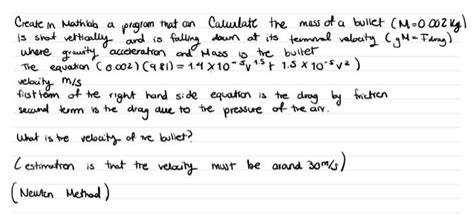 Create in Mathlab a program that can Calculate the mass of a bullet (M=0.002 kg)
is shot vertically and is falling down at its terminal velocity (gM = Fdrag)
where gravity acceleration and Mass is the bullet
The equation (0.002)(9.81) = 1.4 X10⁻⁵v¹·⁵ + 1.5 X 10⁻⁵v²)
velocity m/s
first term of the right hand side equation is the drag by friction
second term is the drag due to the pressure of the air.
what is the velocity of the bullet?
(estimation is that the velocity must be around 30m/s)
(Newton Method)